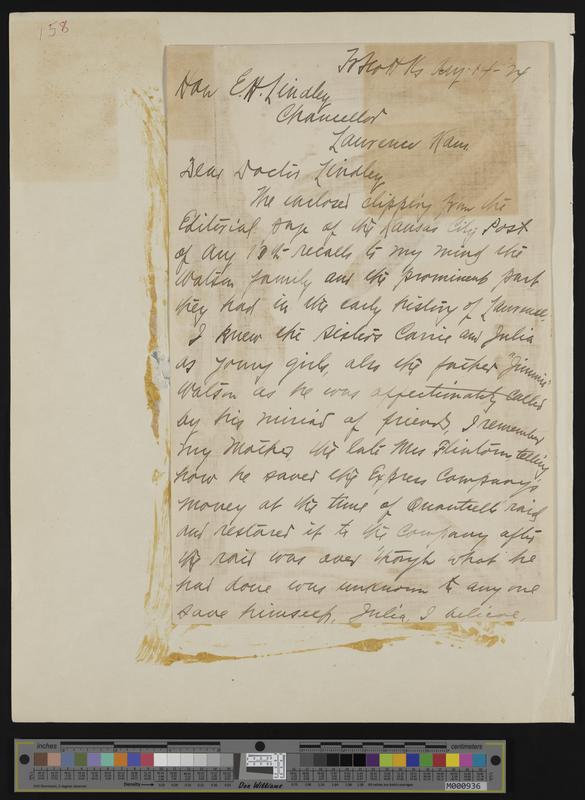 158
Ft Scott Ks Aug. 14-24
Hon E.H. Lindley
Chancellor
Lawrence Kans.
Dear Doctor Lindley
The inclosed clipping from the
Editorial page of the Kansas City Post
of Aug 13th recalls to my mind the
Watson family and the prominent part
they had in the early history of Lawrence.
I knew the sisters Carrie and Julia
as young girls, also the father "Jimmie"
Watson as he was affectionately called
by his miriad of friends, I remember
my Mother, the late Mrs Flintom telling
how he saved the Express Company's
money at the time of Quantrell's raid
and restored it to the Company after
the raid was over though what he
had done was unknown to any one
save himself. Julia, I believe,
inches
centimeters
Density
Don Williams
M000936